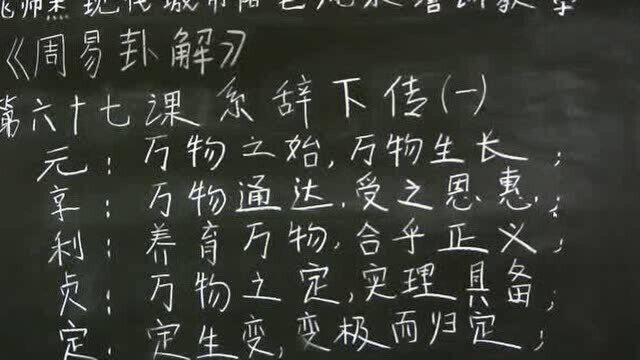 现代城市阳宅风水培训教案
《周易卦解》
第六十七课 系辞下传(一)
元：万物之始，万物生长；
亨：万物通达，受之恩惠；
利：养育万物，合乎正义；
贞：万物之定，实理具备；
定：定生变，变极而归定；